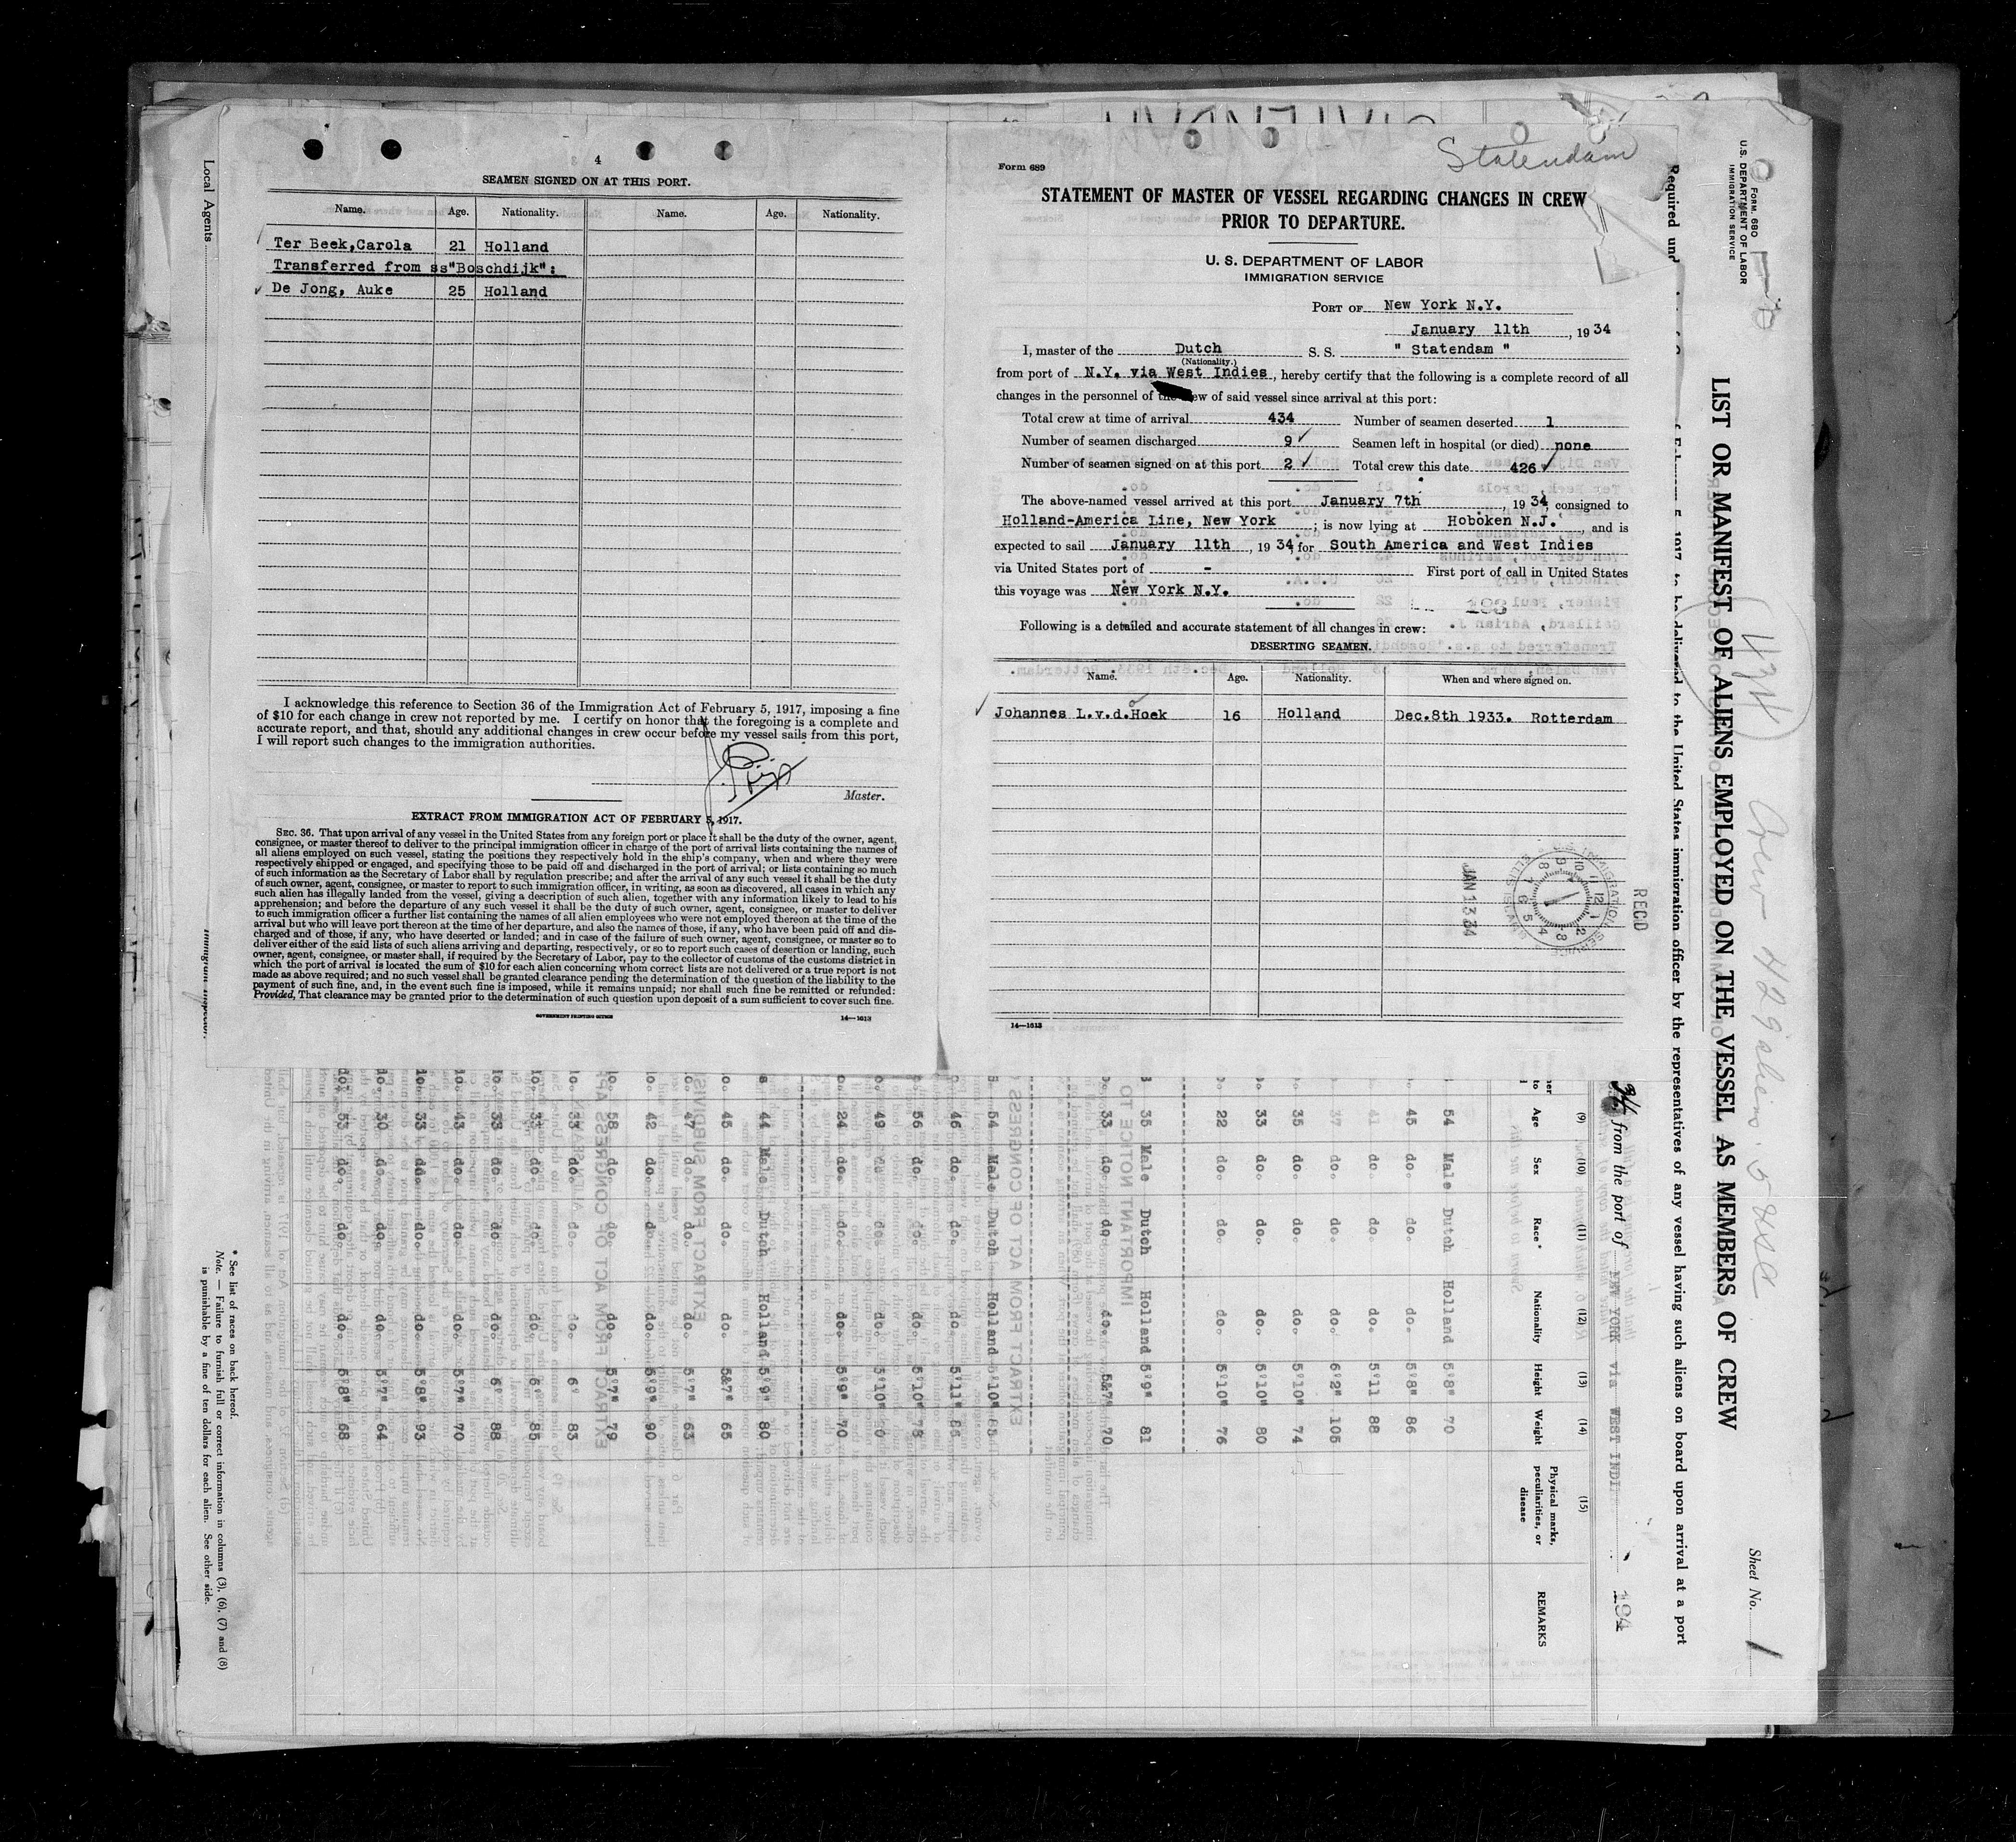 4
SEAMEN SIGNED ON AT THIS PORT.
Name. Age. Nationality. Name. Age. Nationality.
Ter Beek,Carola 21 Holland
Transferred from ss"Boschdijk":
De Jong, Auke 25 Holland
I acknowledge this reference to Section 36 of the Immigration Act of February 5, 1917, imposing a fine
of $10 for each change in crew not reported by me. I certify on honor that the foregoing is a complete and
accurate report, and that, should any additional changes in crew occur before my vessel sails from this port,
I will report such changes to the immigration authorities.
Master.
EXTRACT FROM IMMIGRATION ACT OF FEBRUARY 5, 1917.
SEC. 36. That upon arrival of any vessel in the United States from any foreign port or place it shall be the duty of the owner, agent,
consignee, or master thereof to deliver to the principal immigration officer in charge of the port of arrival lists containing the names of
all aliens employed on such vessel, stating the positions they respectively hold in the ship's company, when and where they were
respectively shipped or engaged, and specifying those to be paid off and discharged in the port of arrival; or lists containing so much
of such information as the Secretary of Labor shall by regulation prescribe; and after the arrival of any such vessel it shall be the duty
of such owner, agent, consignee, or master to report to such immigration officer, in writing, as soon as discovered, all cases in which any
such alien has illegally landed from the vessel, giving a description of such alien, together with any information likely to lead to his
apprehension; and before the departure of any such vessel it shall be the duty of such owner, agent, consignee, or master to deliver
to such immigration officer a further list containing the names of all alien employees who were not employed thereon at the time of the
arrival but who will leave port thereon at the time of her departure, and also the names of those, if any, who have been paid off and dis-
charged and of those, if any, who have deserted or landed; and in case of the failure of such owner, agent, consignee, or master so to
deliver either of the said lists of such aliens arriving and departing, respectively, or so to report such cases of desertion or landing, such
owner, agent, consignee, or master shall, if required by the Secretary of Labor, pay to the collector of customs of the customs district in
which the port of arrival is located the sum of $10 for each alien concerning whom correct lists are not delivered or a true report is not
made as above required; and no such vessel shall be granted clearance pending the determination of the question of the liability to the
payment of such fine, and, in the event such fine is imposed, while it remains unpaid; nor shall such fine be remitted or refunded:
Provided, That clearance may be granted prior to the determination of such question upon deposit of a sum sufficient to cover such fine.
GOVERNMENT PRINTING OFFICE 14—1613
Statendam
Form 689
STATEMENT OF MASTER OF VESSEL REGARDING CHANGES IN CREW
PRIOR TO DEPARTURE.
U. S. DEPARTMENT OF LABOR
IMMIGRATION SERVICE
PORT OF New York N.Y.
January 11th, 1934
I, master of the Dutch S. S. " Statendam "
(Nationality.)
from port of N.Y. via West Indies, hereby certify that the following is a complete record of all
changes in the personnel of the crew of said vessel since arrival at this port:
Total crew at time of arrival 434 Number of seamen deserted 1
Number of seamen discharged 9 Seamen left in hospital (or died) none
Number of seamen signed on at this port 2 Total crew this date 426
The above-named vessel arrived at this port January 7th, 1934, consigned to
Holland-America Line, New York; is now lying at Hoboken N.J., and is
expected to sail January 11th, 1934, for South America and West Indies
via United States port of - First port of call in United States
this voyage was New York N.Y.
Following is a detailed and accurate statement of all changes in crew:
DESERTING SEAMEN.
Name. Age. Nationality. When and where signed on.
Johannes L.v.d.Hoek 16 Holland Dec.8th 1933. Rotterdam
14—1613
RECD
JAN 13 34
Local Agents
FORM 680
U.S. DEPARTMENT OF LABOR
IMMIGRATION SERVICE
LIST OR MANIFEST OF ALIENS EMPLOYED ON THE VESSEL AS MEMBERS OF CREW
434
Crew 429 aliens. 5 USC
Sheet No. 1
to be delivered to the United States immigration officer by the representatives of any vessel having such aliens on board upon arrival at a port
34. from the port of NEW YORK via WEST INDI
(9) (10) (11) (12) (13) (14) (15)
Age Sex Race* Nationality Height Weight Physical marks, peculiarities, or disease REMARKS
54 Male Dutch Holland 5'8" 70
45 do. do. do. 5'8" 86
41 do. do. do. 5'11 88
37 do. do. do. 6'2" 105
35 do. do. do. 5'10" 74
33 do. do. do. 5'10" 80
22 do. do. do. 5'10" 76
35 Male Dutch Holland 5'9" 81
33 do. do. do. 5&7" 70
54 Male Dutch Holland 5'10" 85
46 do. do. do. 5'11"
56 do. do. do. 5'10"
49 do. do. do. 5'10"
24 do. do. do. 5'9" 70
44 Male Dutch Holland 5'9" 80
45 do. do. do. 5&7" 65
47 do. do. do. 5'7" 63
42 do. do. do. 5'9" 90
58 do. do. do. 5'7" 79
37 do. do. do. 6' 83
do. do. do. 6' 85
33 do. do. do. 6' 88
43 do. do. do. 5'7" 70
33 do. do. do. 5'8" 93
30 do. do. do. 5'7" 64
53 do. do. do. 5'8" 68
* See list of races on back hereof.
Note. — Failure to furnish full or correct information in columns (3), (6), (7) and (8)
is punishable by a fine of ten dollars for each alien. See other side.